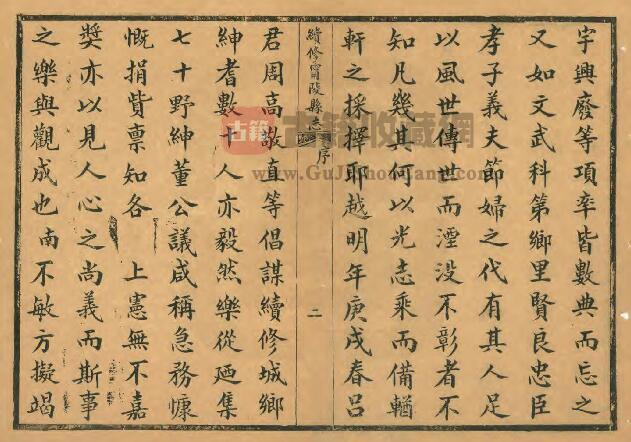 字興廢等項率皆數典而忘之
又如文武科第鄉里賢良忠臣
孝子義夫節婦之代有其人足
以風世傳世而湮没不彰者不
知凡幾其何以光志乘而備輶
軒之採擇耶越明年庚戌春呂
續修甯陵縣志 序 二
君周高敬直等倡謀續修城鄉
紳耆數十人亦毅然樂從廼集
七十野紳董公議咸稱急務慷
慨捐貲稟知各 上憲無不嘉
獎亦以見人心之尚義而斯事
之樂與觀成也南不敏方擬竭
古籍
古籍收藏网
www.GuJiShouCang.com